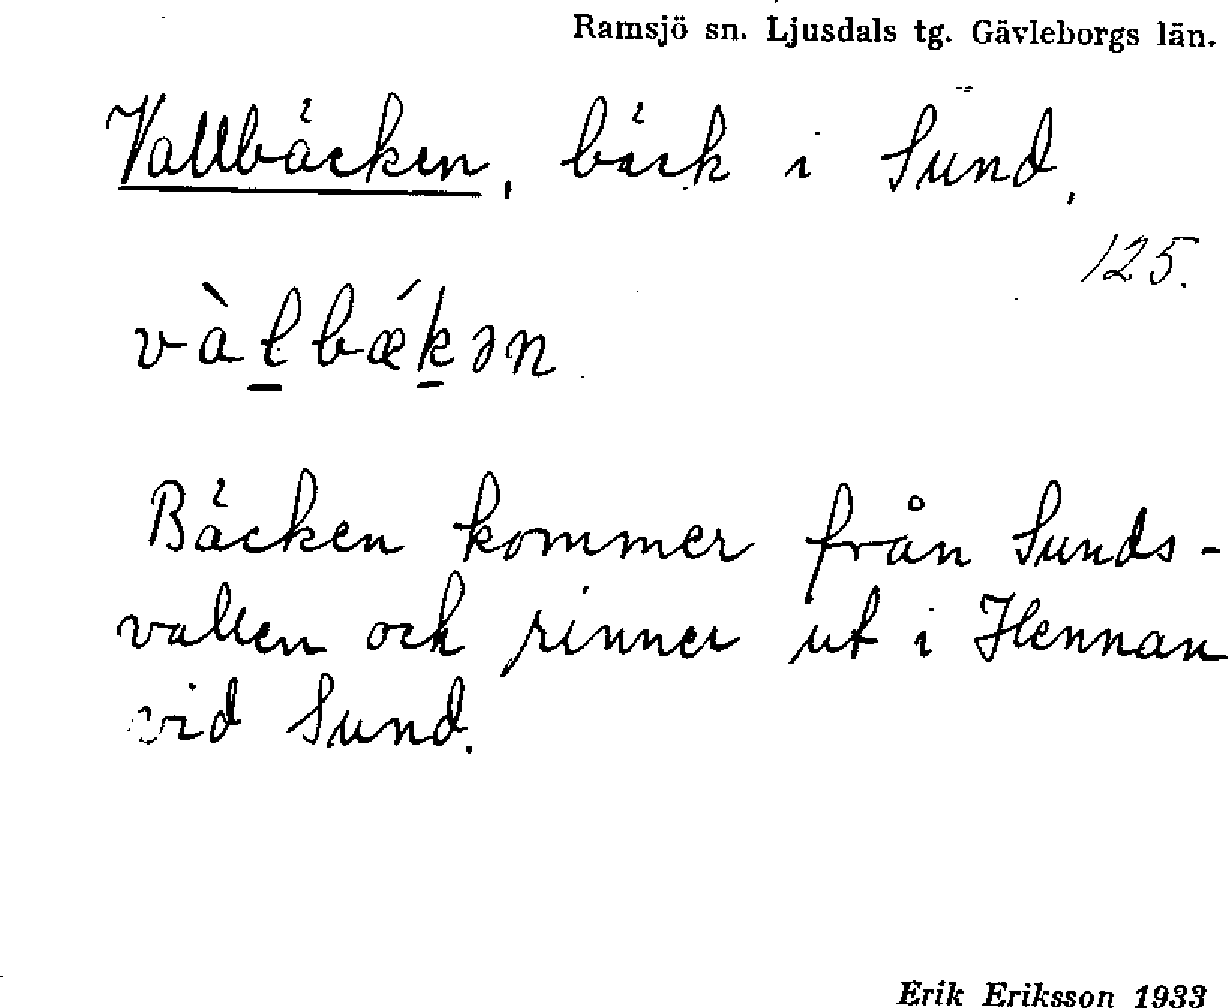 Ramsjö sn. Ljusdals tg. Gävleborgs län.
Vallbäcken, bäck i Sund,
125.
và̀l̲bǽk̲ən
Bäcken kommer från Sunds-
vallen och rinner ut i Hennan
vid Sund.
Erik Eriksson 1933